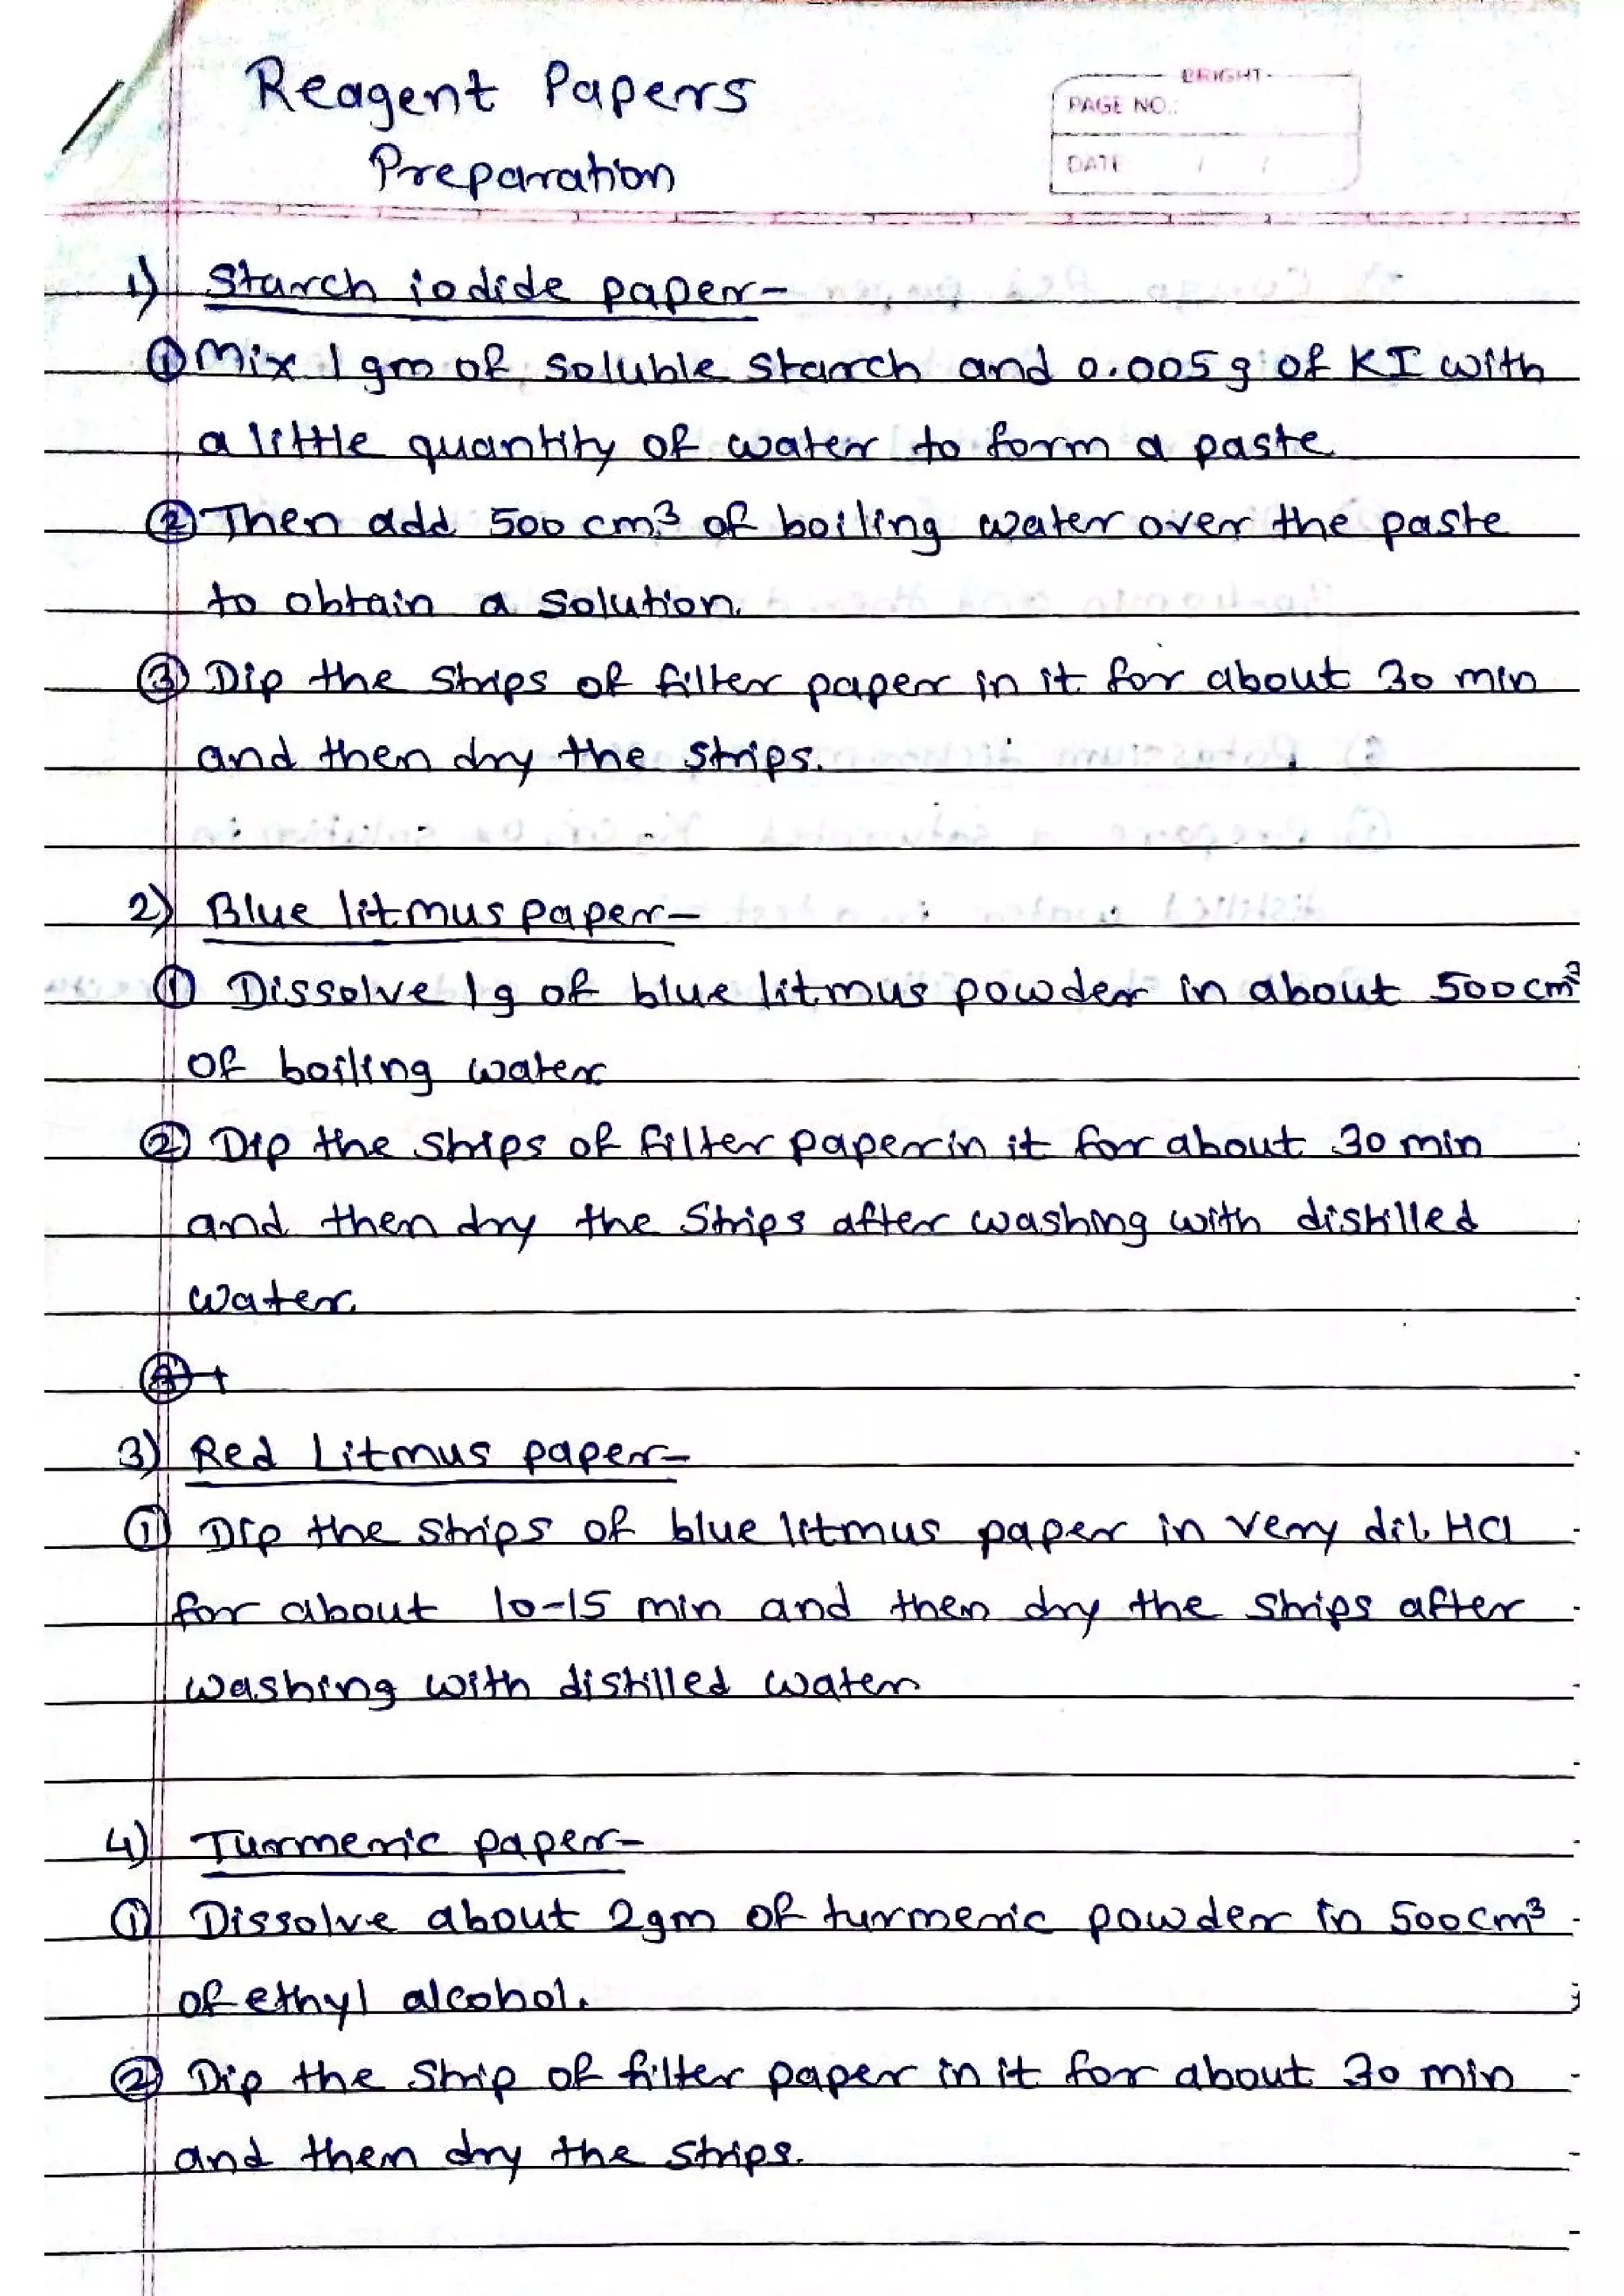 Reagent Papers
Preparation
BRIGHT
PAGE NO.:
DATE / /
1) Starch iodide paper-
① Mix 1 gm of soluble starch and 0.005 g of KI with
a little quantity of water to form a paste
② Then add 500 cm³ of boiling water over the paste
to obtain a solution.
③ Dip the strips of filter paper in it for about 30 min
and then dry the strips.
2) Blue litmus paper-
① Dissolve 1 g of blue litmus powder in about 500 cm³
of boiling water
② Dip the strips of filter paper in it for about 30 min
and then dry the strips after washing with distilled
water.
3) Red Litmus paper-
① Dip the strips of blue litmus paper in very dil. HCl
for about 10-15 min and then dry the strips after
washing with distilled water
4) Turmeric paper-
① Dissolve about 2gm of turmeric powder in 500cm³
of ethyl alcohol.
② Dip the strip of filter paper in it for about 30 min
and then dry the strips.